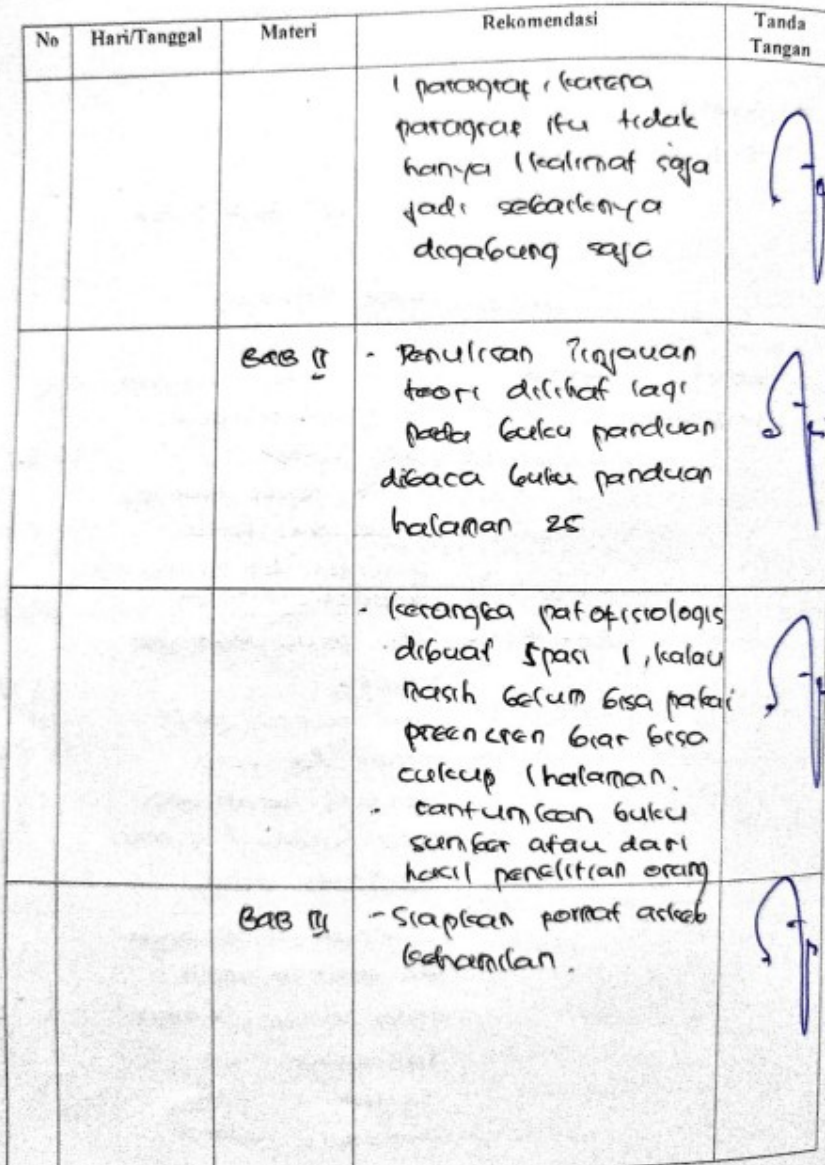 No Hari/Tanggal Materi Rekomendasi Tanda Tangan
1 paragraf, karena
paragraf itu tidak
hanya 1 kalimat saja
jadi sebaiknya
digabung saja
BAB II - Penulisan Tinjauan
teori dilihat lagi
pada buku panduan
dibaca buku panduan
halaman 25
- kerangka patofisiologis
dibuat spasi 1, kalau
masih belum bisa pakai
biar bisa
cukup 1 halaman.
- cantumkan buku
sumber atau dari
hasil penelitian orang
BAB III - Siapkan format askeb
kehamilan.